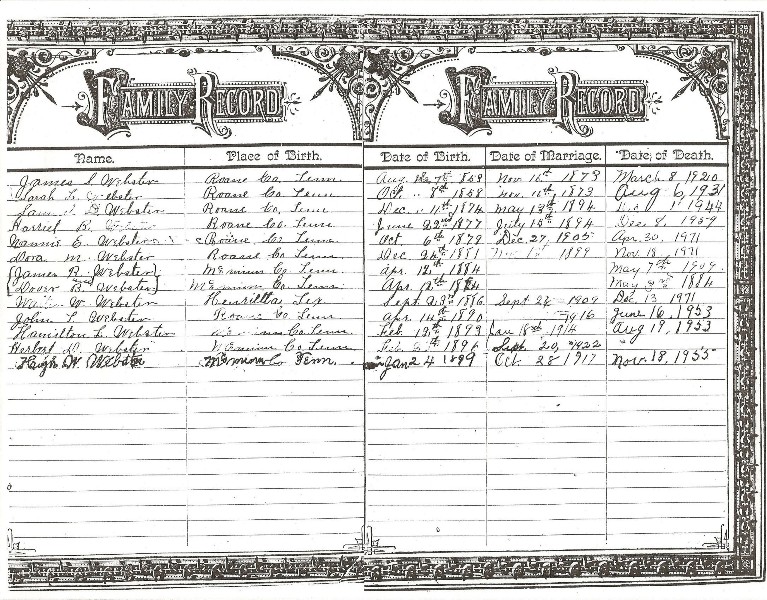 FAMILY RECORD FAMILY RECORD
Name. Place of Birth. Date of Birth. Date of Marriage. Date of Death.
James S. Webster Roane Co. Tenn. Aug. 7th 1859 Nov. 16th 1873 March 8 1920
Sarah L. Webster Roane Co. Tenn Oct. 8th 1858 Nov. 16th 1873 Aug 6, 1931
B. Webster Roane Co. Tenn. Dec. 11th 1874 May 13th 1894 1944
Harriet B. Roane Co. Tenn. June 22nd 1877 July 15th 1894 Dec 8, 1959
Nannie E. Webster Roane Co. Tenn Oct 6th 1879 Dec. 27, 1905 Apr. 30, 1971
Dora M. Webster Roane Co. Tenn Dec 24th 1881 Nov 18 1971
James R. Webster McMinn Co. Tenn. Apr. 12th 1884 May 7th 1909
Dover B. Webster McMinn Co. Tenn. Apr. 12th 1884 May 1884
W. Webster Henrietta Tex Sept. 23rd 1886 Sept 26 1909 Dec 13, 1971
John T. Webster Roane Co. Tenn Apr. 14th 1890 1916 June 16, 1953
Hamilton L. Webster Co. Tenn. Feb. 12th 1893 Jan 18th 1914 Aug 19, 1953
Herbert D. Webster McMinn Co. Tenn. Feb. 1896 Sept. 20, 1922
Hugh W. Webster McMinn Co Tenn. Jan 24 1899 Oct. 28 1917 Nov. 18, 1955